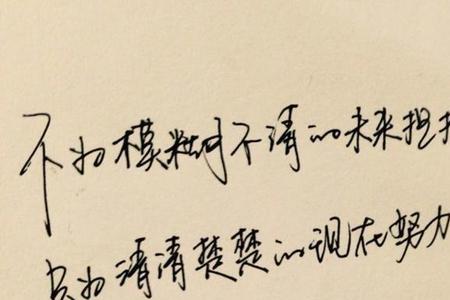 不为模糊不清的未来担
只为清清楚楚的现在努力